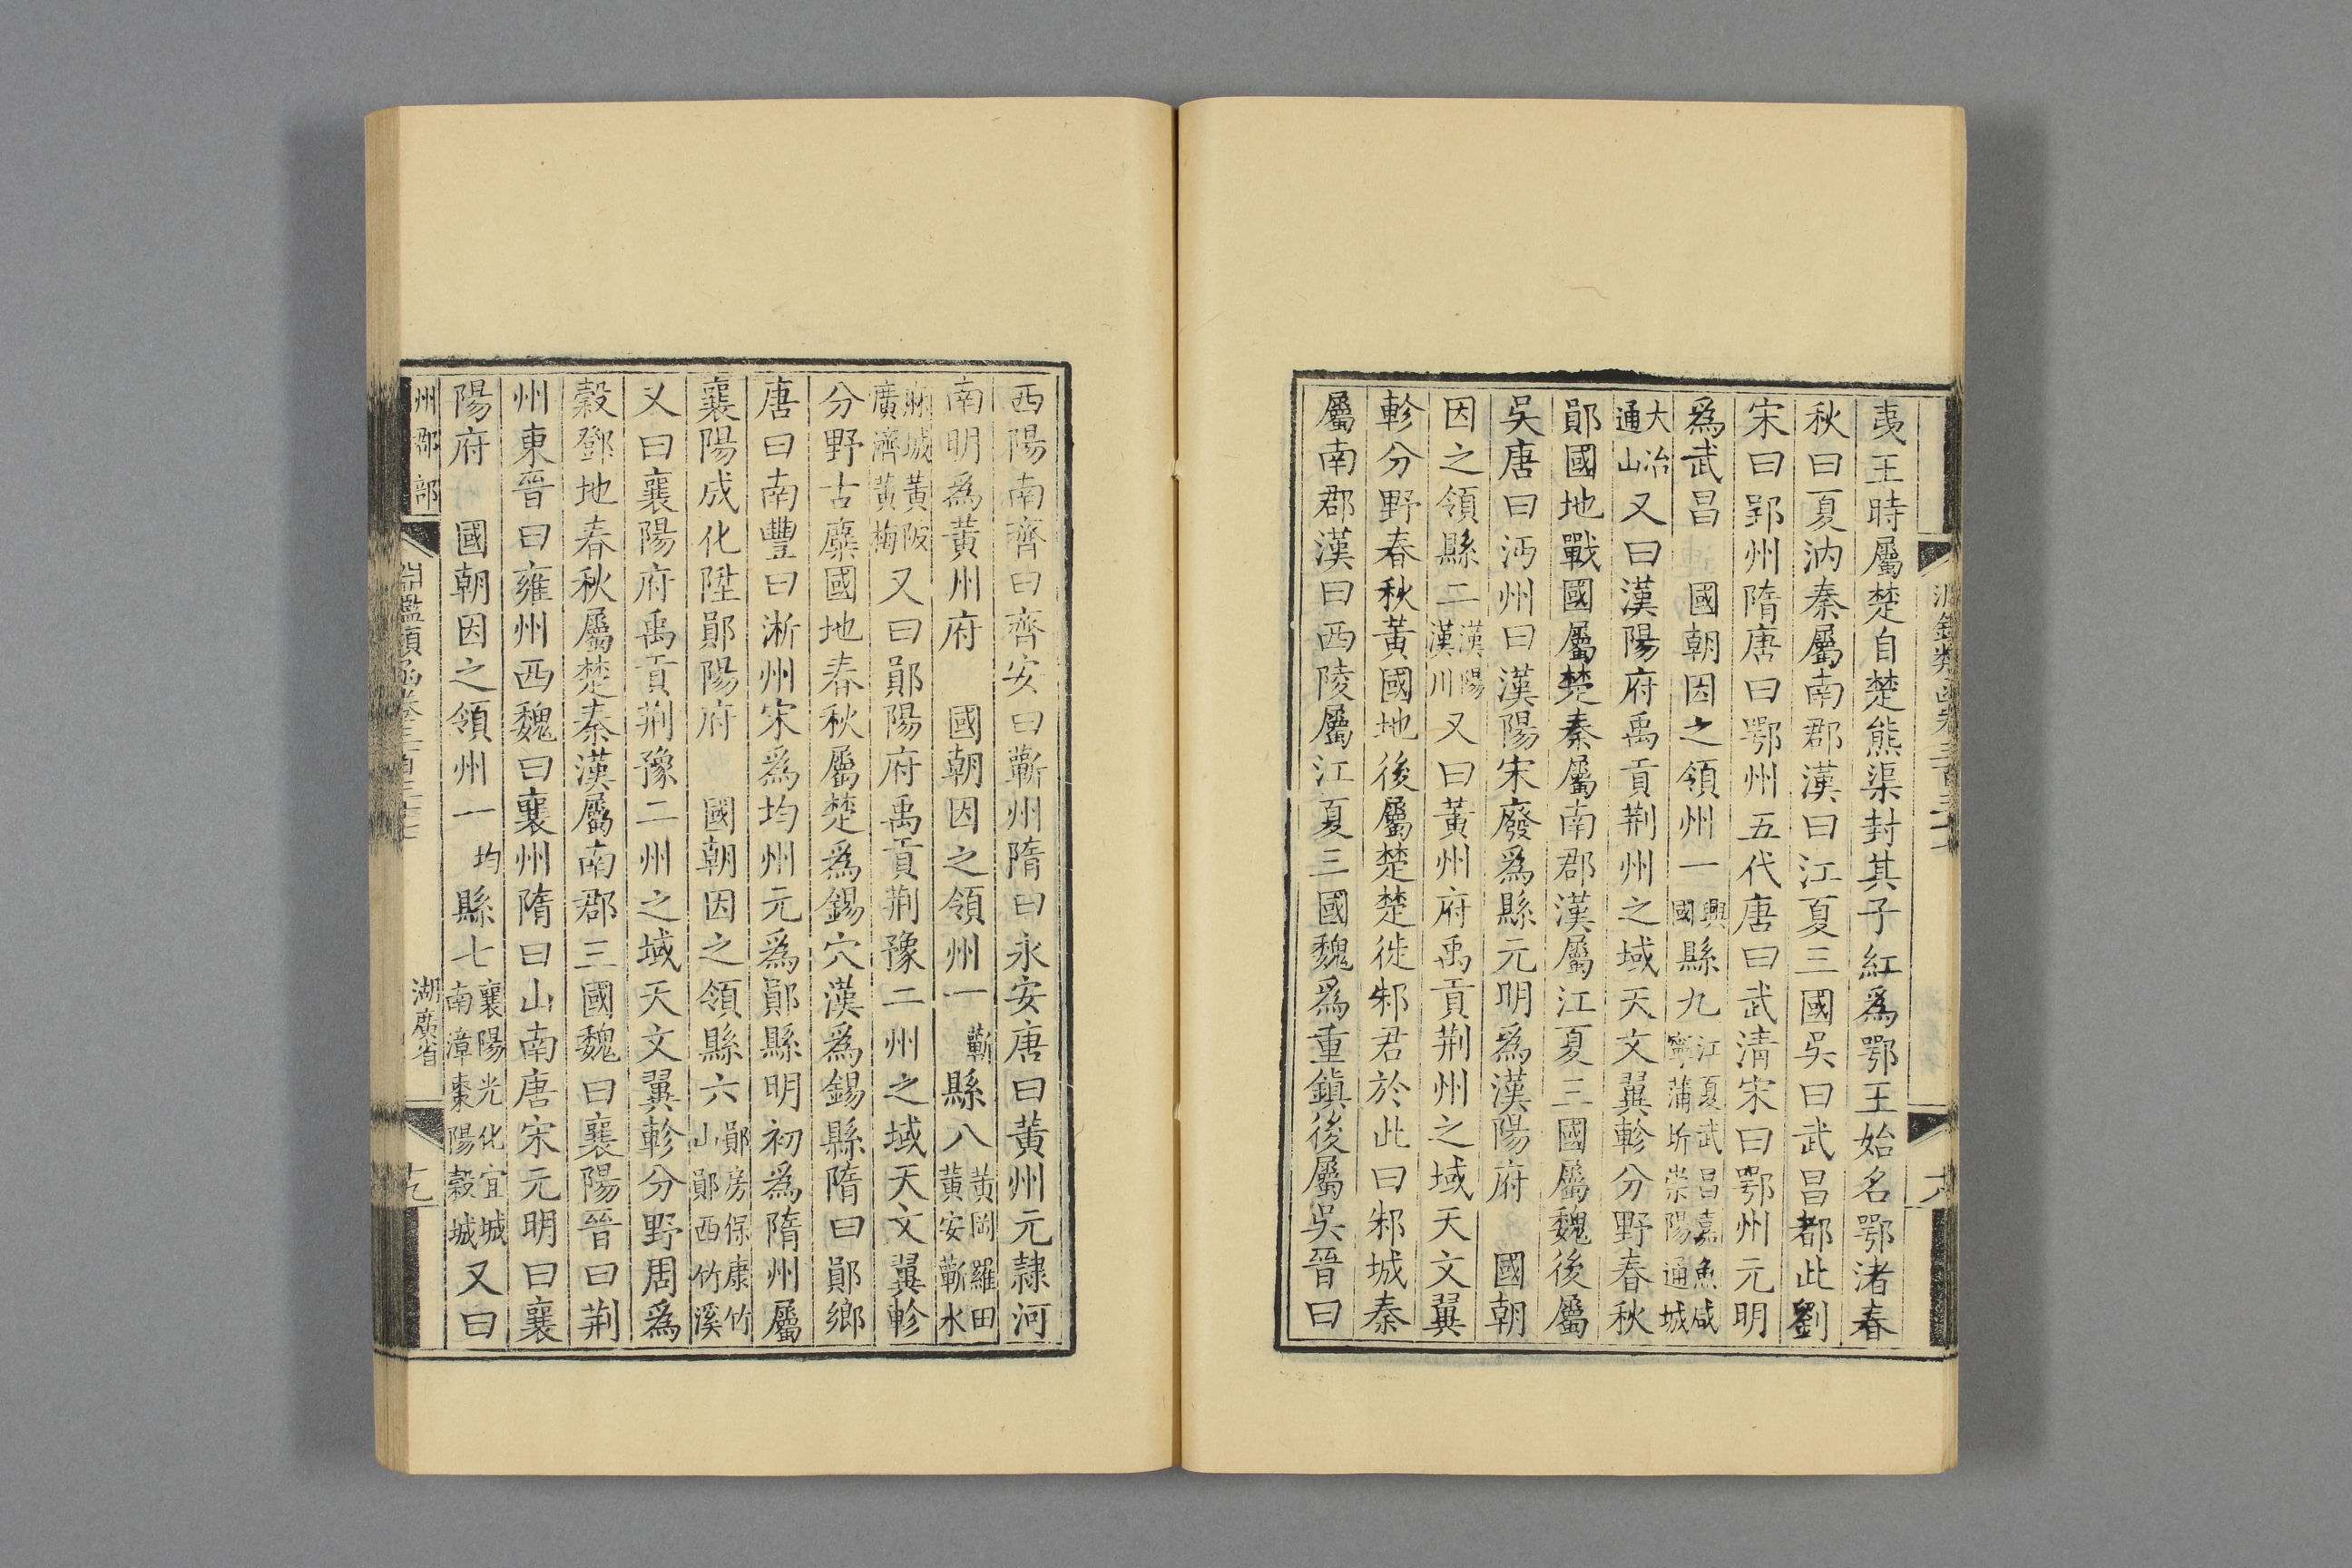 夷王時屬楚自楚熊渠封其子紅爲鄂王始名鄂渚春
秋曰夏汭秦屬南郡漢曰江夏三國吳曰武昌都此劉
宋曰郢州隋唐曰鄂州五代唐曰武清宋曰鄂州元明
爲武昌　國朝因之領州一興國縣九江夏武昌嘉魚咸寧蒲圻崇陽通城
大冶通山又曰漢陽府禹貢荆州之域天文翼軫分野春秋
鄖國地戰國屬楚秦屬南郡漢屬江夏三國屬魏後屬
吳唐曰沔州曰漢陽宋廢爲縣元明爲漢陽府　國朝
因之領縣二漢陽漢川又曰黃州府禹貢荆州之域天文翼
軫分野春秋黃國地後屬楚楚徙邾君於此曰邾城秦
屬南郡漢曰西陵屬江夏三國魏爲重鎭後屬吳晉曰
西陽南齊曰齊安曰蘄州隋曰永安唐曰黃州元隷河
南明爲黃州府　國朝因之領州一蘄縣八黃岡羅田黃安蘄水
麻城黃陂廣濟黃梅又曰鄖陽府禹貢荆豫二州之域天文翼軫
分野古麋國地春秋屬楚爲錫穴漢爲錫縣隋曰鄖鄉
唐曰南豐曰淅州宋爲均州元爲鄖縣明初爲隋州屬
襄陽成化陞鄖陽府　國朝因之領縣六鄖房保康竹山鄖西竹溪
又曰襄陽府禹貢荆豫二州之域天文翼軫分野周爲
穀鄧地春秋屬楚秦漢屬南郡三國魏曰襄陽晉曰荆
州東晉曰雍州西魏曰襄州隋曰山南唐宋元明曰襄
陽府　國朝因之領州一均縣七襄陽光化宜城南漳棗陽穀城又曰
州郡部
淵鑑類函卷三百三十七
湖廣省